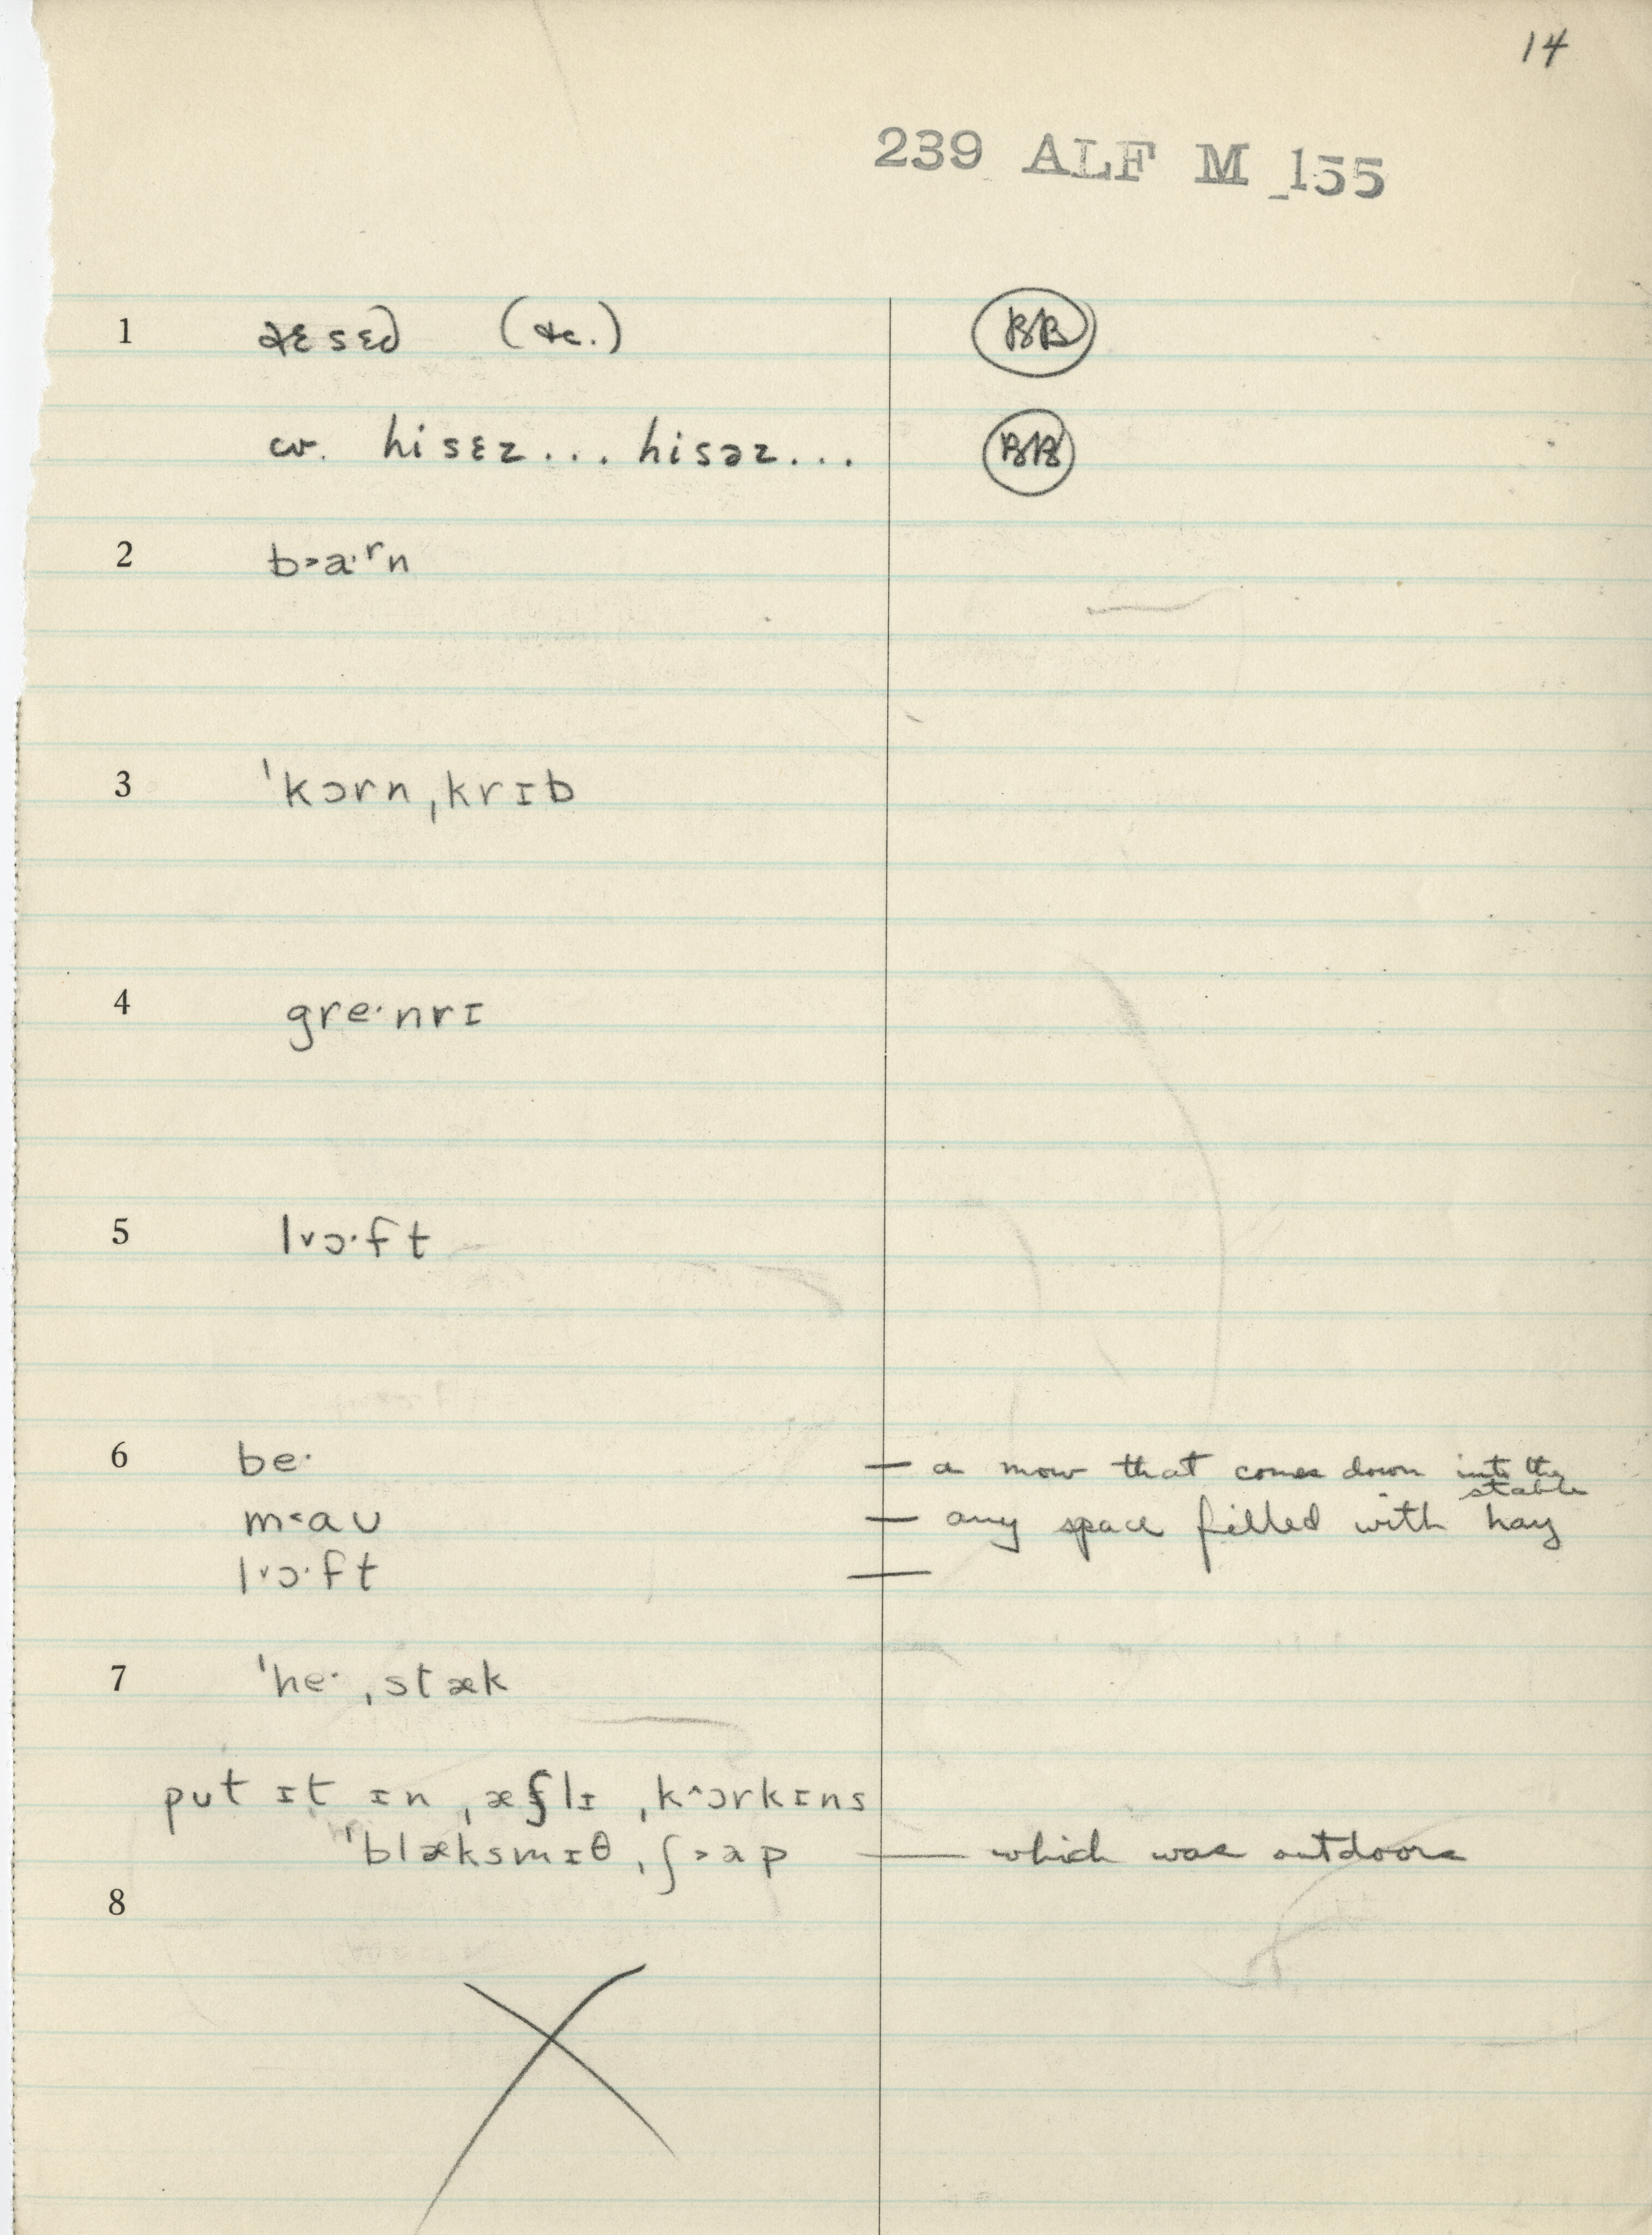 14
239 ALF M 155
1 (&c.) BB
cv. hisɛz... hisəz... BB
2 b˃a·ʳn
3 ˈkɔrnˌkrɪb
4 gre·nrɪ
5 lᵛɔ·ft
6 be· — a mow that comes down into the stable
m˂aʊ — any space filled with hay
lᵛɔ·ft —
7 ˈhe·ˌstæk
put ɪt ɪn ˌæʃlɪ ˌk˄ɔrkɪns
ˈblæksmɪθˌʃ˃ap — which was outdoors
8